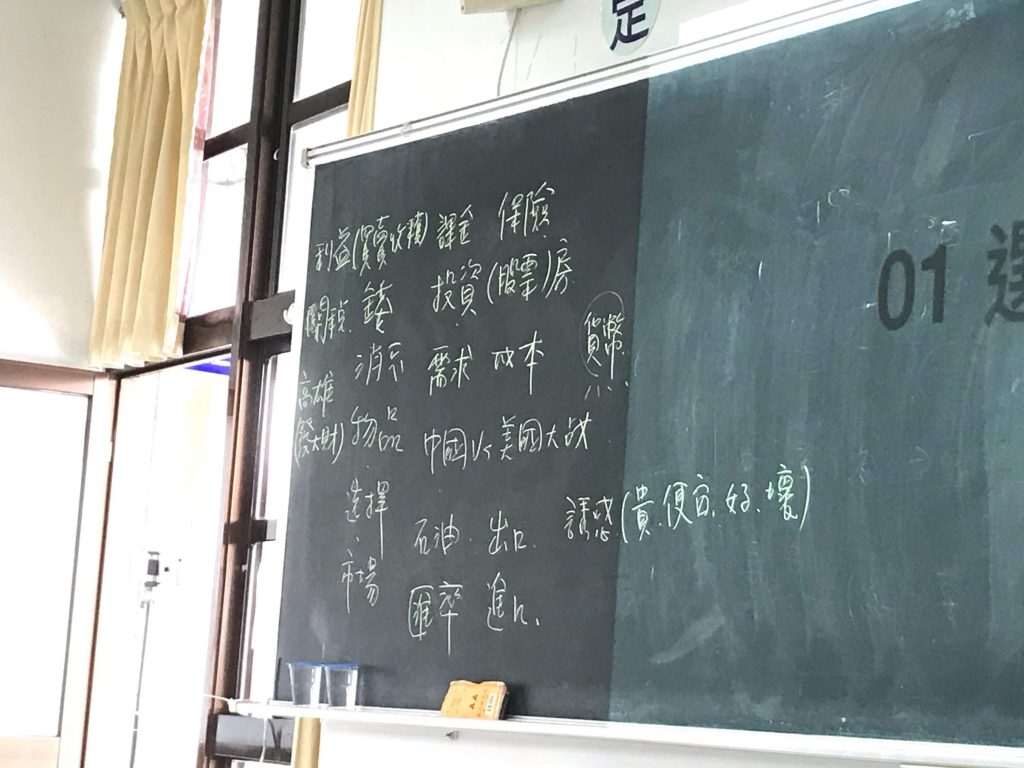 定
01 選
利益(買賣收穫) 課金 保險
關鍵 錢 投資(股票)房
貨幣
消示 需求 成本
高雄
(發大財) 物品 中國VS美國大战
選擇 石油 出口 誘惑(貴.便宜.好.壞)
市場 匯率 進口